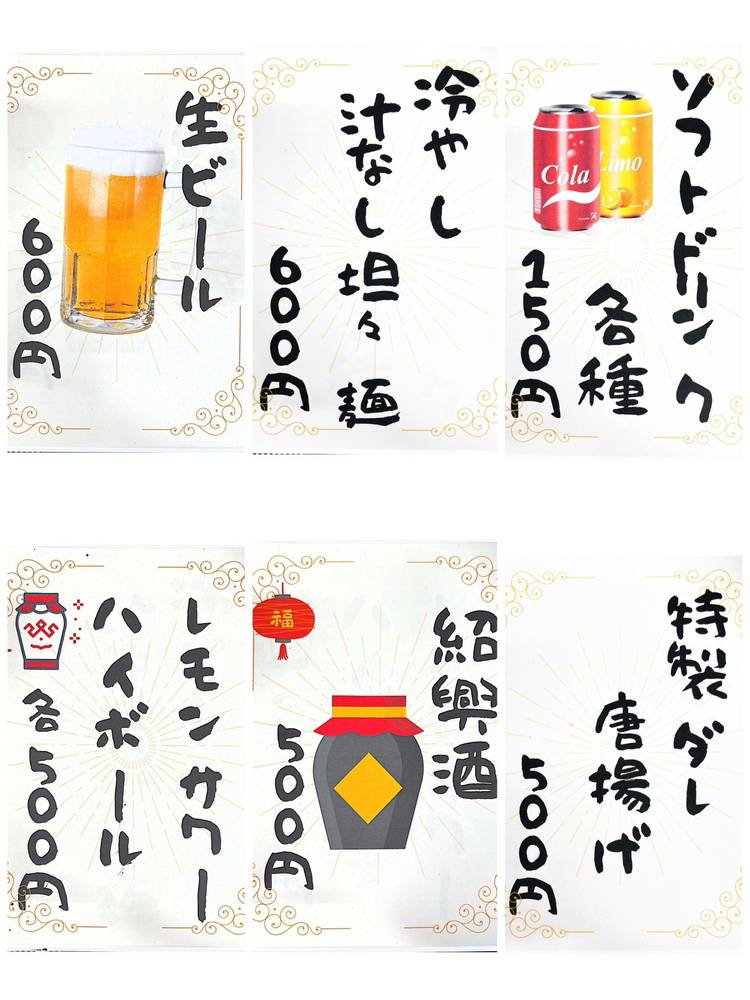 生ビール
600円
冷やし
汁なし坦々麺
600円
ソフトドリンク
各種
150円
Cola
Limo
レモンサワー
ハイボール
各500円
福
紹興酒
500円
特製ダレ
唐揚げ
500円